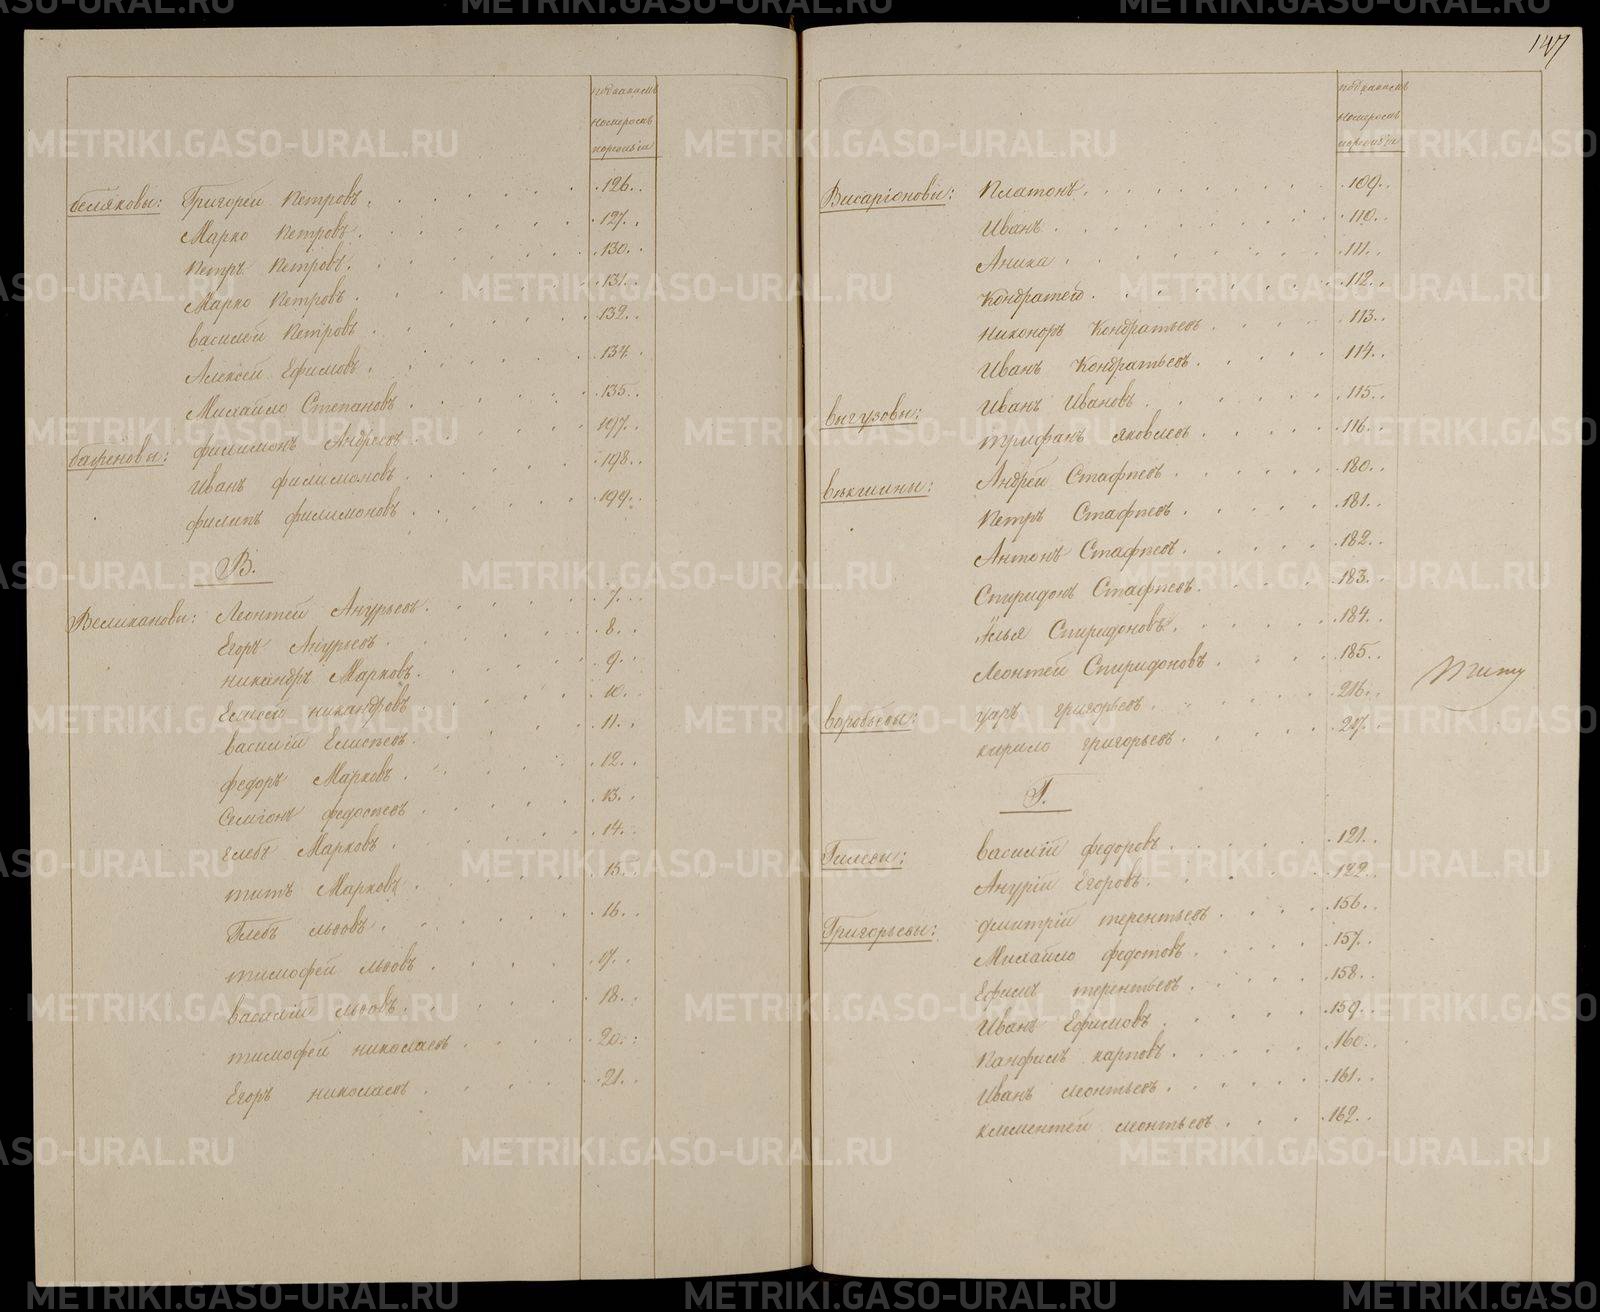 подъ какимъ
номеромъ
дворъ
белековы: Григорей Петровъ 126.
Марко Петровъ 127.
Петръ Петровъ 130.
Марко Петровъ 131.
василей Петровъ 132.
Алексей Ефимовъ 134.
Михайло Степановъ 135.
филимонъ Андреевъ 197.
Иванъ филимоновъ 198.
филипъ филимоновъ 199.
В.
Великановы: Леонтей Анурьевъ 7.
Егоръ Анурьевъ 8.
никандръ Марковъ 9.
Елисей никандровъ 10.
василій Елисеевъ 11.
федоръ Марковъ 12.
федосеевъ 13.
Глебъ Марковъ 14.
титъ Марковъ 15.
Глебъ львовъ 16.
тимофей львовъ 17.
василій львовъ 18.
тимофей николаевъ 20.
Егоръ николаевъ 21.
147
подъ какимъ
номеромъ
Висаріоновы: Платонъ 109.
Иванъ 110.
Аника 111.
Кондратей 112.
никоноръ Кондратьевъ 113.
Иванъ Кондратьевъ 114.
Иванъ Ивановъ 115.
вигузовы: трифанъ яковлевъ 116.
векшины: Андрей Стафеевъ 180.
Петръ Стафеевъ 181.
Антонъ Стафеевъ 182.
Спиридонъ Стафеевъ 183.
Илья Спиридоновъ 184.
Леонтей Спиридоновъ 185.
воробьевы: уаръ григорьевъ 216.
кирило григорьевъ 217.
Г.
Гилевы: василій федоровъ 121.
Анурій Егоровъ 122.
Григорьевы: дмитрій терентьевъ 156.
Михайло федотовъ 157.
Ефимъ терентьевъ 158.
Иванъ Ефимовъ 159.
Панфилъ карповъ 160.
Иванъ леонтьевъ 161.
клементей леонтьевъ 162.
METRIKI.GASO-URAL.RU